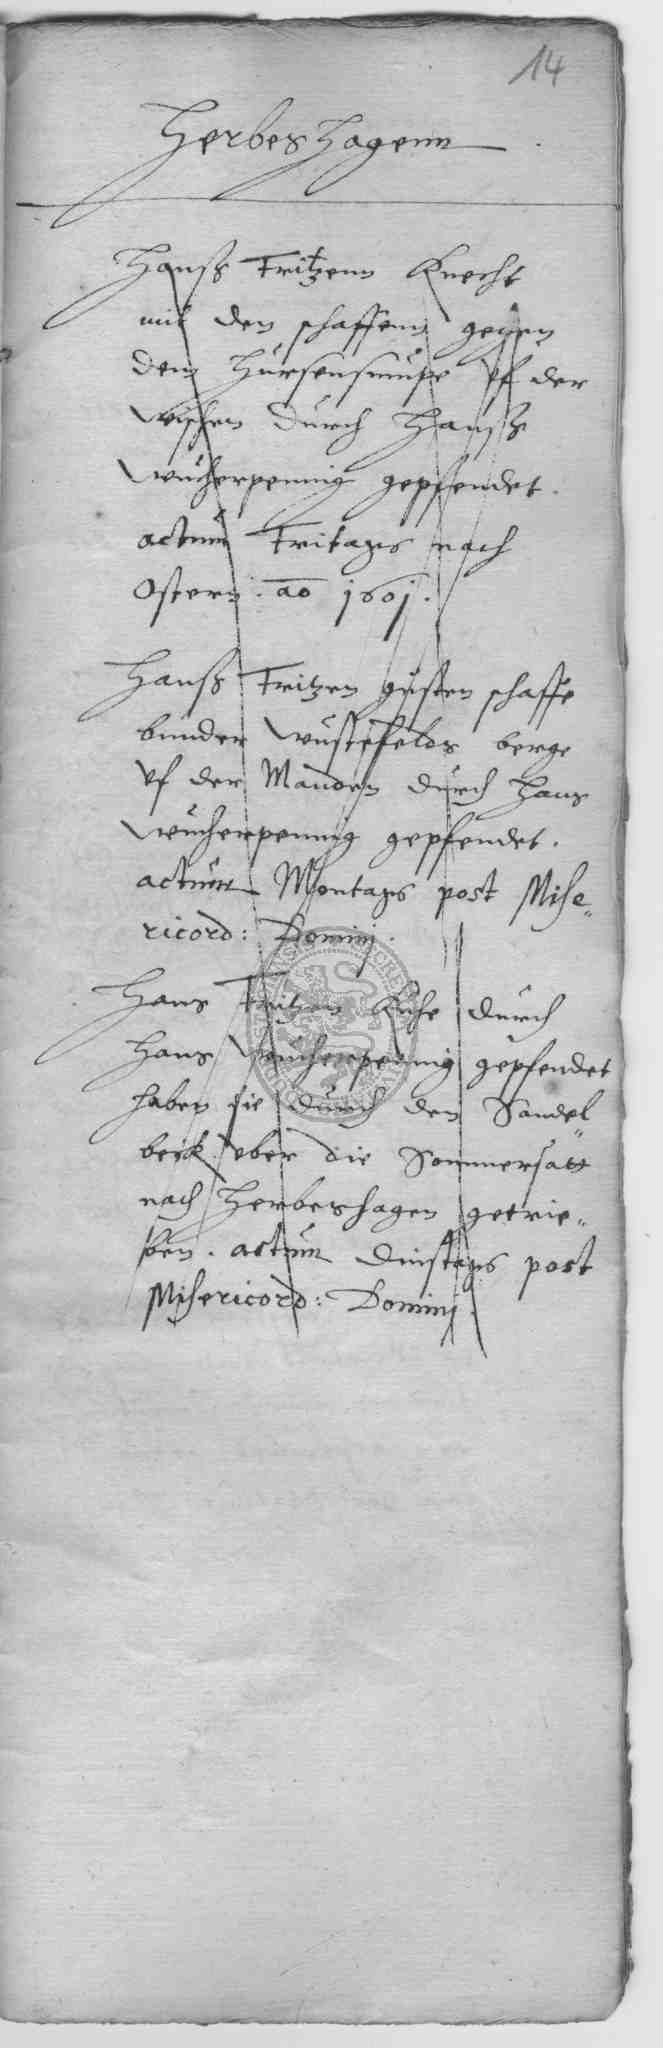 14
Herbeshagenn
Hanß Fritzenn Knecht
mit den schaffenn gegen
dem uf der
wischen durch Hanß
wucherpennig gepfendet.
actum Fritags nach
Ostern. ao 1601.
Hanß Fritzen gusten schaffe
bunder wustefelds berge
uf der Manden durch Hans
wucherpennig gepfendet.
actum Montags post Mise„
ricord: Dominj.
Hans Fritzen Kuhe durch
Hans wucherpennig gepfendet
haben sie durch den Sandel
beck uber die Sommersatt
nach Herbeshagen getrie„
ben. actum Dinstags post
Misericord: Dominj.